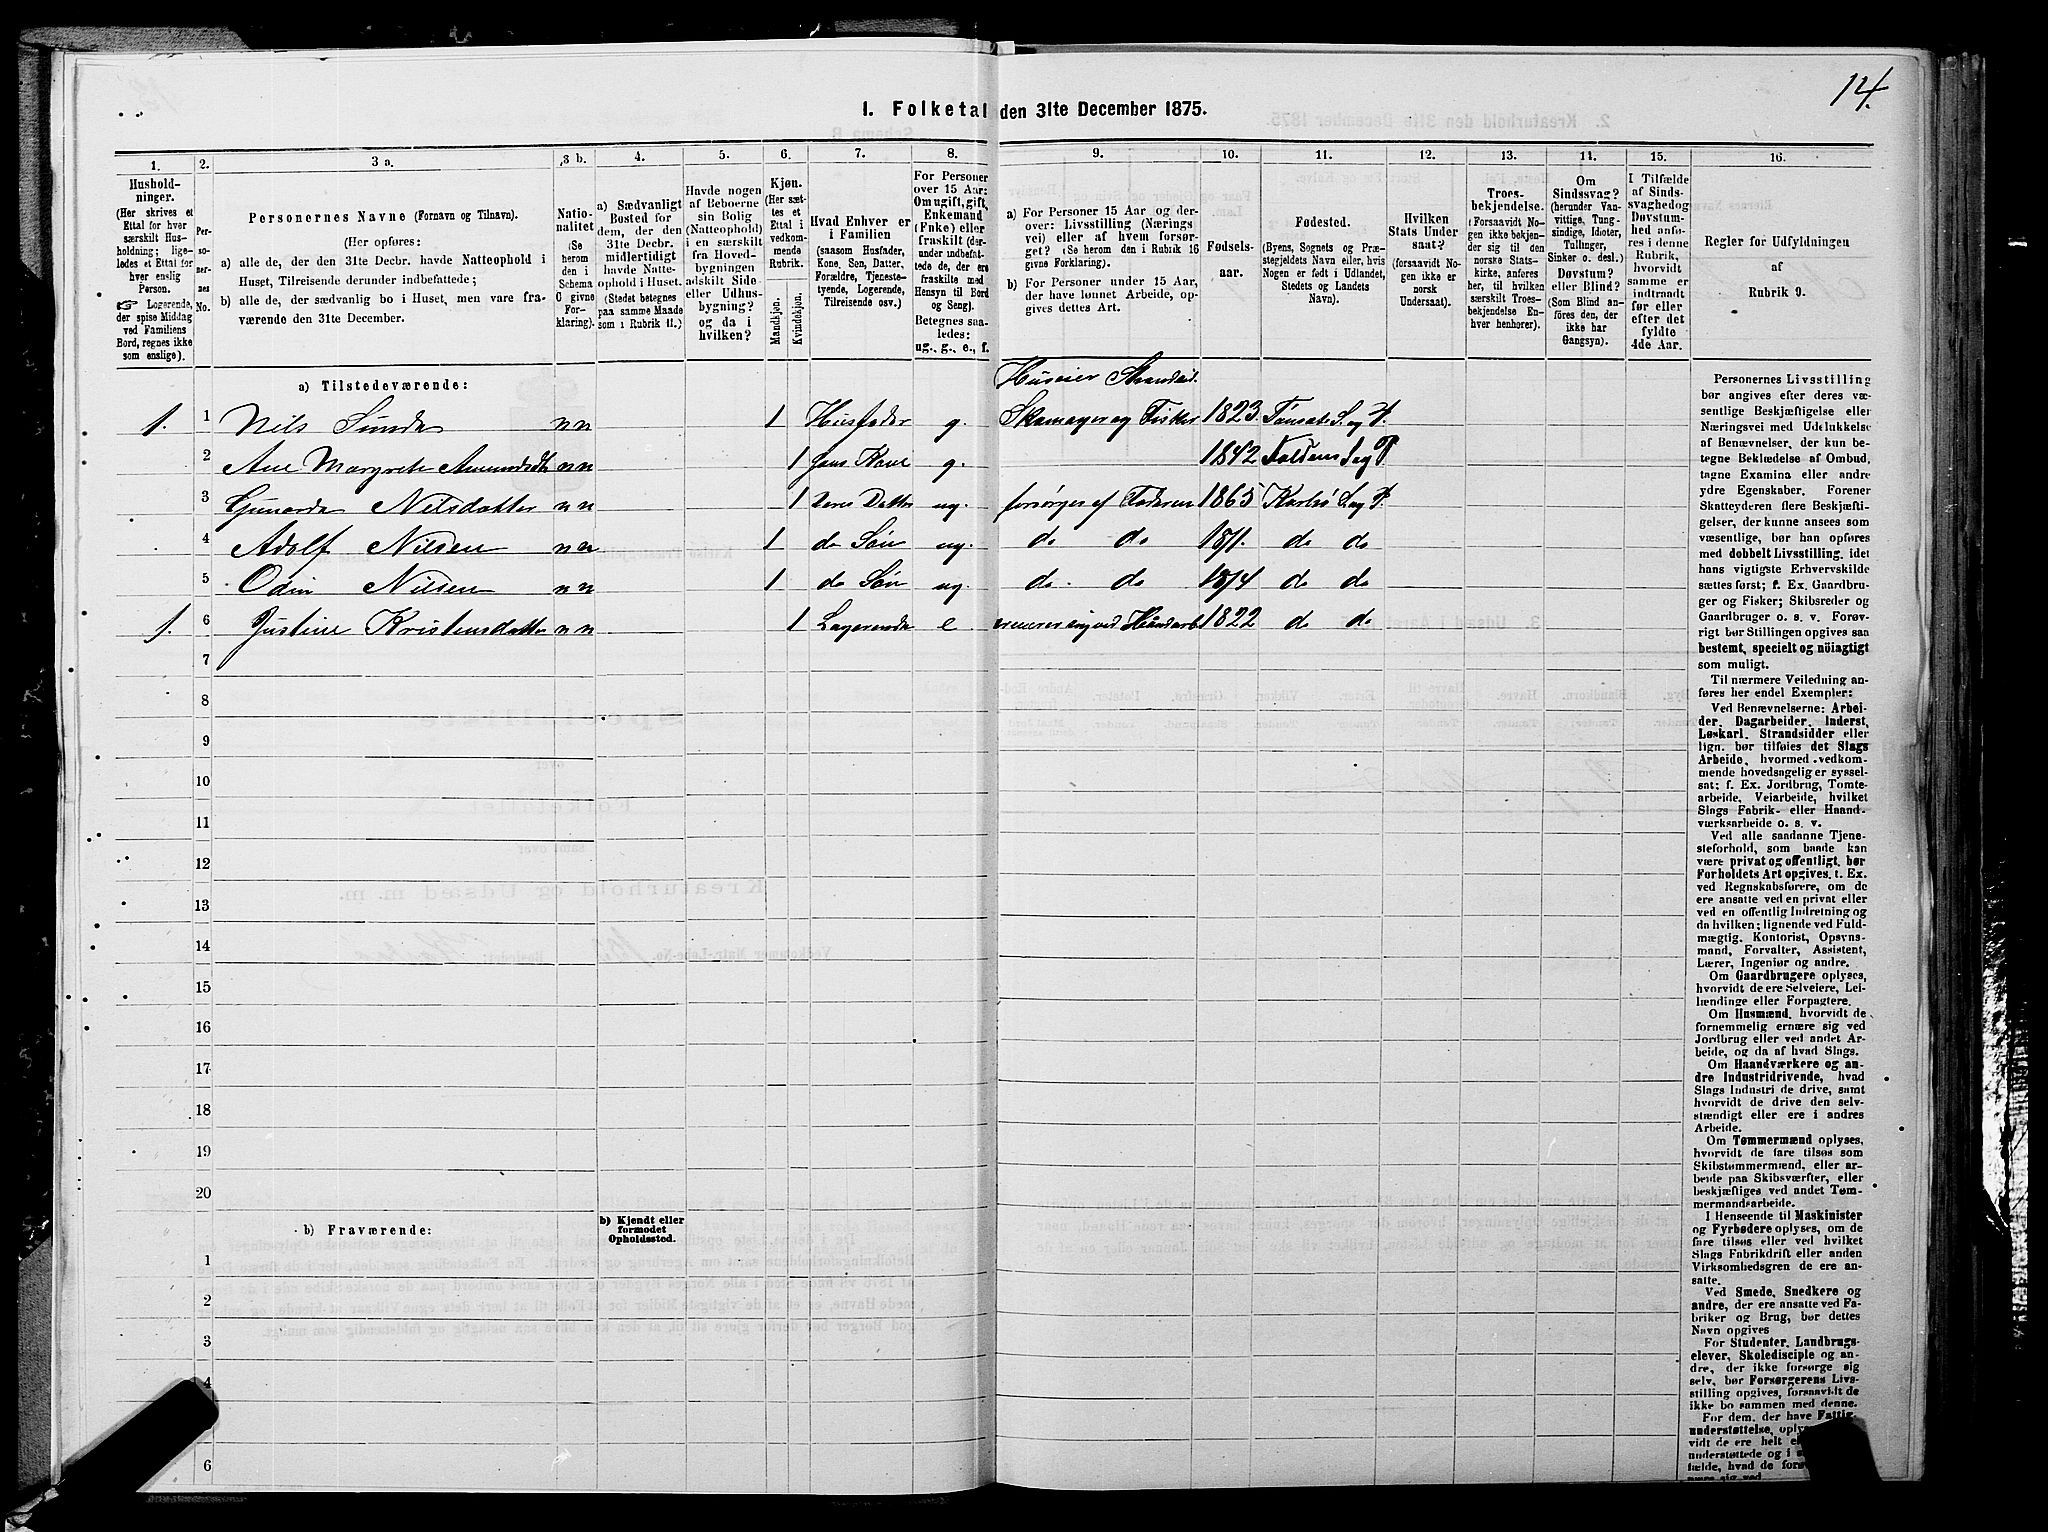 14.
1. Folketal den 31te December 1875.
1.
2.
3 a.
3 b.
4.
5.
6.
7.
8.
9.
10.
11.
12.
13.
14.
15.
16.
Hushold-
ninger.
(Her skrives et
Ettal for hver
særskilt Hus-
holdning; lige-
ledes et Ettal for
hver enslig
Person.
☞ Logerende,
der spise Middag
ved Familiens
Bord, regnes ikke
som enslige).
Per-
so-
ner-
nes
No.
Personernes Navne (Fornavn og Tilnavn).
(Her opføres:
a) alle de, der den 31te Decbr. havde Natteophold i
Huset, Tilreisende derunder indbefattede;
b) alle de, der sædvanlig bo i Huset, men vare fra-
værende den 31te December.
Natio-
nalitet
(Se
herom
den i
Schema
C givne
For-
klaring).
a) Sædvanligt
Bosted for
dem, der den
31te Decbr.
midlertidigt
havde Natte-
ophold i Huset.
(Stedet betegnes
paa samme Maade
som i Rubrik 11.)
Havde nogen
af Beboerne
sin Bolig
(Natteophold)
i en særskilt
fra Hoved-
bygningen
adskilt Side-
eller Udhus-
bygning?
og da i
hvilken?
Kjøn.
(Her sæt-
tes et
Ettal i
vedkom-
mende
Rubrik.
Mandkjøn.
Kvindekjøn.
Hvad Enhver er
i Familien
(saasom Husfader,
Kone, Søn, Datter,
Forældre, Tjeneste-
tyende, Logerende,
Tilreisende osv.)
For Personer
over 15 Aar:
Om ugift, gift,
Enkemand
(Enke) eller
fraskilt (der-
under indbefat-
tede de, der ere
fraskilte med
Hensyn til Bord
og Seng).
Betegnes saa-
ledes:
ug., g., e., f.
a) For Personer 15 Aar og der-
over: Livsstilling (Nærings-
vei) eller af hvem forsør-
get? (Se herom den i Rubrik 16
givne Forklaring).
b) For Personer under 15 Aar,
der have lønnet Arbeide, op-
gives dettes Art.
Fødsels-
aar.
Fødested.
(Byens, Sognets og Præ-
stegjeldets Navn eller, hvis
Nogen er født i Udlandet,
Stedets og Landets
Navn).
Hvilken
Stats Under-
saat?
(forsaavidt No-
gen ikke er
norsk
Undersaat).
Troes-
bekjendelse.
(Forsaavidt No-
gen ikke bekjen-
der sig til den
norske Stats-
kirke, anføres
her, til hvilken
særskilt Troes-
bekjendelse En-
hver henhører).
Om
Sindssvag?
(herunder Van-
vittige, Tung-
sindige, Idioter,
Tullinger,
Sinker o. desl.)
Døvstum?
eller Blind?
(Som Blind an-
føres den, der
ikke har
Gangsyn).
I Tilfælde
af Sinds-
svaghed og
Døvstum-
hed anfø-
res i denne
Rubrik,
hvorvidt
samme er
indtraadt
før eller
efter det
fyldte
4de Aar.
Regler for Udfyldningen
af
Rubrik 9.
a) Tilstedeværende:
Huseier Strandsid.
1. 1 Nils Sunda nn 1 Husfader g. Skomager og Fisker 1823 S. og P.
2 Ane Margrete nn 1 hans Kone g. 1842 Folden S og P
3 Gunarda Nilsdatter nn 1 Deres Datter ug. forsørges af Faderen 1865 Karlsø S og P.
4 Adolf Nilsen nn 1 do Søn ug. do do 1871. do do
5 Odin Nilsen nn 1 do Søn ug. do. do 1874 do do
1. 6 Justine Kristensdatter nn 1 Logerende e ernærer sig ved Haandarb. 1822 do do
7
8
9
10
11
12
13
14
15
16
17
18
19
20
b) Fraværende:
b) Kjendt eller
formodet
Opholdssted.
1
2
3
4
6
Personernes Livsstilling
bør angives efter deres væ-
sentlige Beskjæftigelse eller
Næringsvei med Udelukkelse
af Benævnelser, der kun be-
tegne Beklædelse af Ombud,
tagne Examina eller andre
ydre Egenskaber. Forener
Skatteyderen flere Beskjæfti-
gelser, der kunne ansees som
væsentlige, bør han opføres
med dobbelt Livsstilling, idet
hans vigtigste Erhvervskilde
sættes først; f. Ex. Gaardbru-
ger og Fisker; Skibsreder og
Gaardbruger o. s. v. Forøv-
rigt bør Stillingen opgives saa
bestemt, specielt og nöiagtigt
som muligt.
Til nærmere Veiledning an-
føres her endel Exempler:
Ved Benævnelserne: Arbei-
der, Dagarbeider, Inderst,
Løskarl, Strandsidder eller
lign. bør tilføies det Slags
Arbeide, hvormed vedkom-
mende hovedsagelig er syssel-
sat; f. Ex. Jordbrug, Tomte-
arbeide, Veiarbeide, hvilket
Slags Fabrik- eller Haand-
værksarbeide o. s. v.
Ved alle saadanne Tjene-
steforhold, som baade kan
være privat og offentligt, bør
Forholdets Art opgives, f. Ex.
ved Regnskabsførere, om de
ere ansatte ved en privat eller
ved en offentlig Indretning og
da hvilken; lignende ved Fuld-
mægtig, Kontorist, Opsyns-
mand, Forvalter, Assistent,
Lærer, Ingeniør og andre.
Om Gaardbrugere oplyses,
hvorvidt de ere Selveiere, Lei-
lændinge eller Forpagtere.
Om Husmænd, hvorvidt de
fornemmelig ernære sig ved
Jordbrug eller ved andet Ar-
beide, og da af hvad Slags.
Om Haandværkere og an-
dre Industridrivende, hvad
Slags Industri de drive, samt
hvorvidt de drive den selv-
stændigt eller ere i andres
Arbeide.
Om Tømmermænd oplyses,
hvorvidt de fare tilsøs som
Skibstømmermænd, eller ar-
beide paa Skibsværfter, eller
beskjæftiges ved andet Tøm-
mermandsarbeide.
I Henseende til Maskinister
og Fyrbødere oplyses, om de
fare tilsøs eller ved hvilket
Slags Fabrikdrift eller anden
Virksomhedsgren de ere an-
satte.
Ved Smede, Snedkere og
andre, der ere ansatte ved Fa-
briker og Brug, bør dettes
Navn opgives
For Studenter, Landbrugs-
elever, Skoledisciple og an-
dre, der ikke forsørge sig
selv, bør Forsørgerens Livs-
stilling opgives, forsaavidt de
ikke bo sammen med denne.
For dem, der have Fattig-
understøttelse, oply
vidt de ere helt
understøttede og i
fælde, hvad de